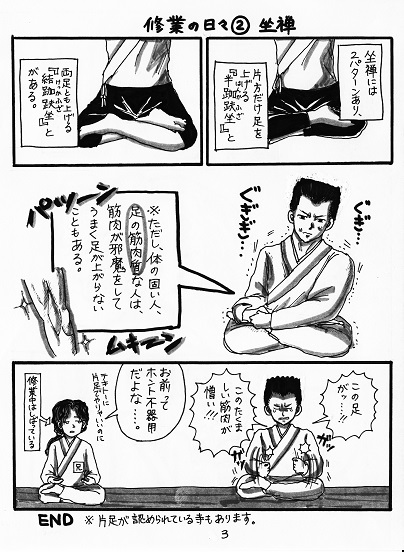 修業の日々② 坐禅
坐禅には
2パターンあり、
片方だけ足を
上げる
『半跏趺坐』と
はんかふざ
両足とも上げる
『結跏趺坐』と
けっかふざ
がある。
ぐぎぎ…
ぐぎぎ…
※ただし、体の固い人、
足の筋肉質な人は、
筋肉が邪魔をして
うまく足が上がらない
こともある。
パツーン
ムキーン
この足
がァ…!!
このたくま
しい筋肉が
憎い!!!
ガッ
ガッ
お前って
ホント不器用
だよな……。
テキトーに
片足でやりゃいいのに
修業中はしばっている
END ※片足が認められている寺もあります。
3